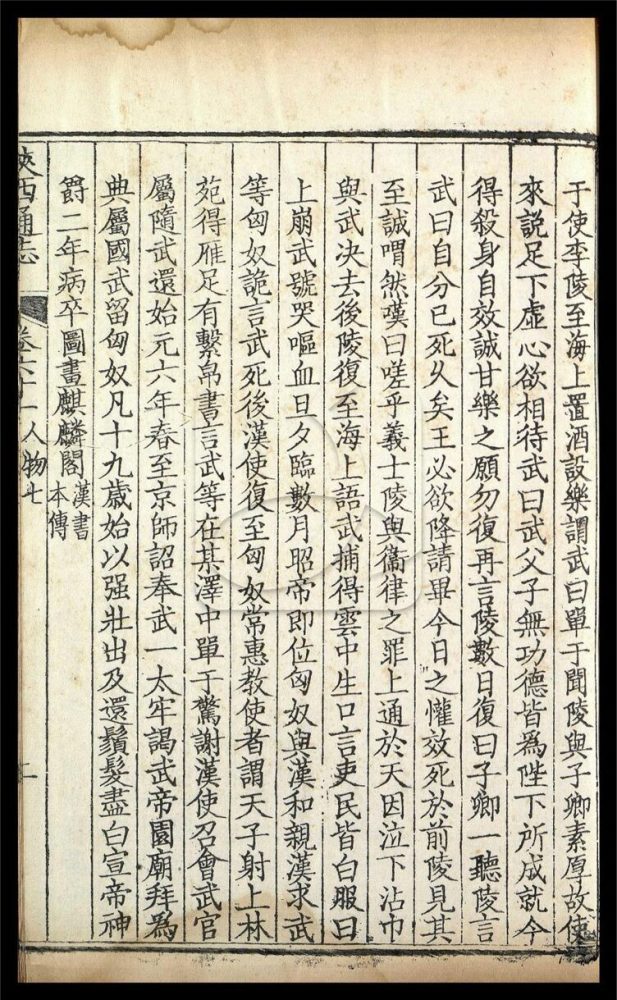 于使李陵至海上置酒設樂謂武曰單于聞陵與子卿素厚故使
來說足下虛心欲相待武曰武父子無功德皆爲陛下所成就今
得殺身自效誠甘樂之願勿復再言陵數日復曰子卿一聽陵言
武曰自分已死久矣王必欲降請畢今日之懽效死於前陵見其
至誠喟然嘆曰嗟乎義士陵與衞律之罪上通於天因泣下沾巾
與武决去後陵復至海上語武捕得雲中生口言吏民皆白服曰
上崩武號哭嘔血旦夕臨數月昭帝即位匈奴與漢和親漢求武
等匈奴詭言武死後漢使復至匈奴常惠教使者謂天子射上林
苑得雁足有繫帛書言武等在某澤中單于驚謝漢使召會武官
屬隨武還始元六年春至京師詔奉武一太牢謁武帝園廟拜爲
典屬國武留匈奴凡十九歲始以强壯出及還鬚髮盡白宣帝神
爵二年病卒圖畫麒麟閣漢書本傳
陝西通志 卷六十一 人物七